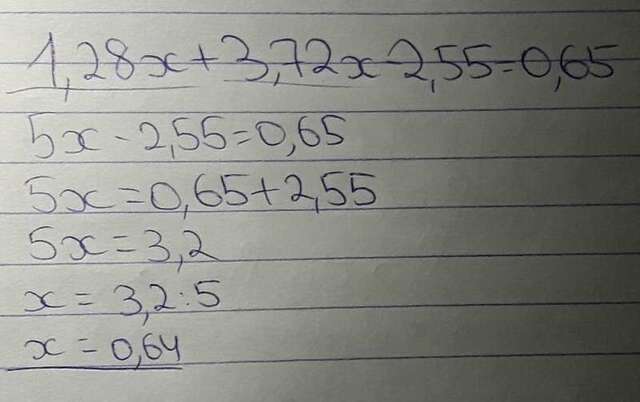 1,28x+3,72x-2,55=0,65
5x-2,55=0,65
5x=0,65+2,55
5x=3,2
x=3,2:5
x=0,64